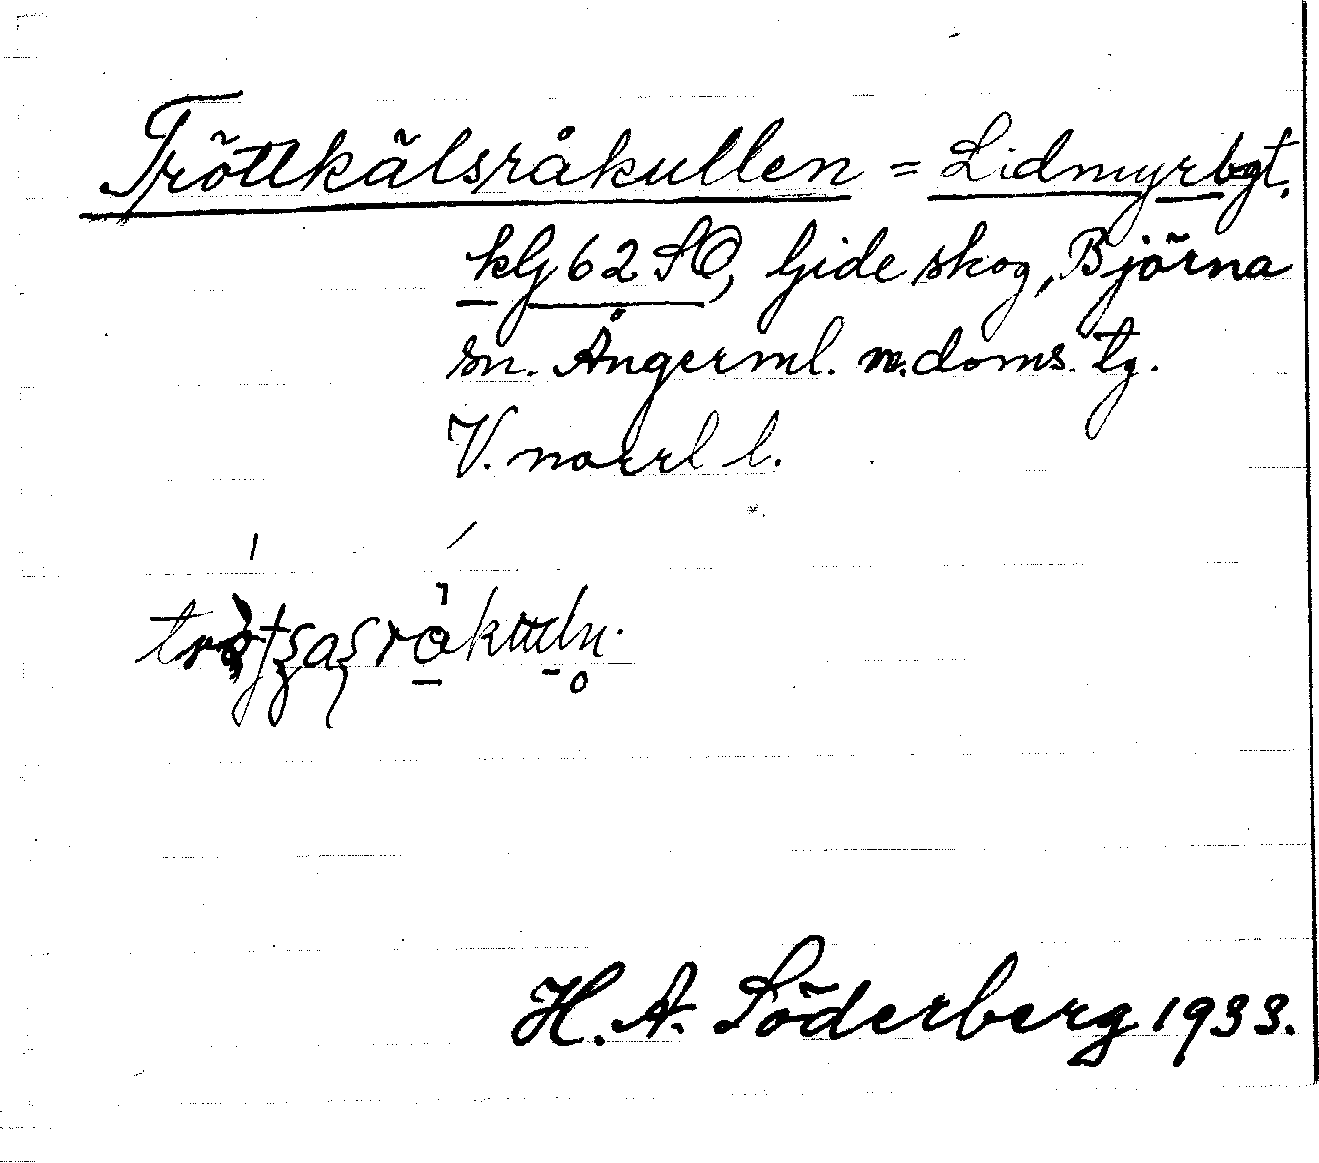 Tröttkälsråkullen = Lidmyrbgt.
klj 62 SO, Gideskog, Björna
sn. Ångerml. n. doms. tg.
V. norrl l.
H. A. Söderberg 1933.